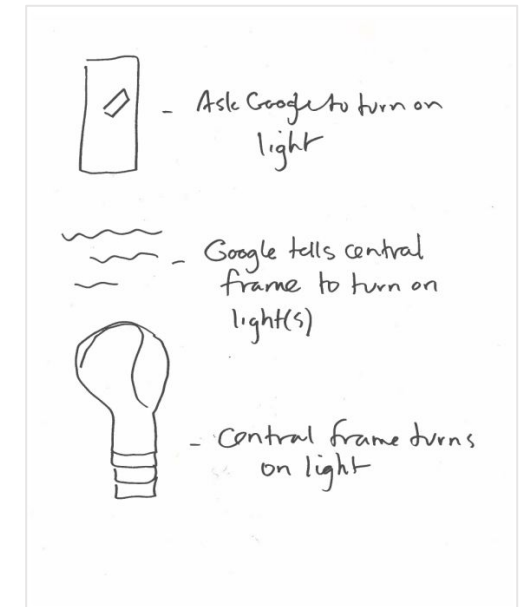 - Ask Google to turn on
light
- Google tells central
frame to turn on
light(s)
- Central frame turns
on light